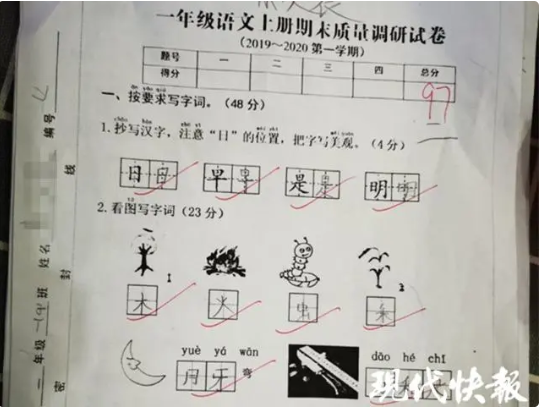 一年级语文上册期末质量调研试卷
（2019～2020 第一学期）
题号 一 二 三 四 总分
得分 97
一、按要求写字词。（48 分）
1.抄写汉字，注意“日”的位置，把字写美观。（4 分）
日 日 早 早 是 是 明 明
2.看图写字词（23 分）
1 2
木 火 虫 朵
yuè yá wān dāo hé chǐ
月 牙 弯
编号
姓名
班
年级
密 封 线
现代快报